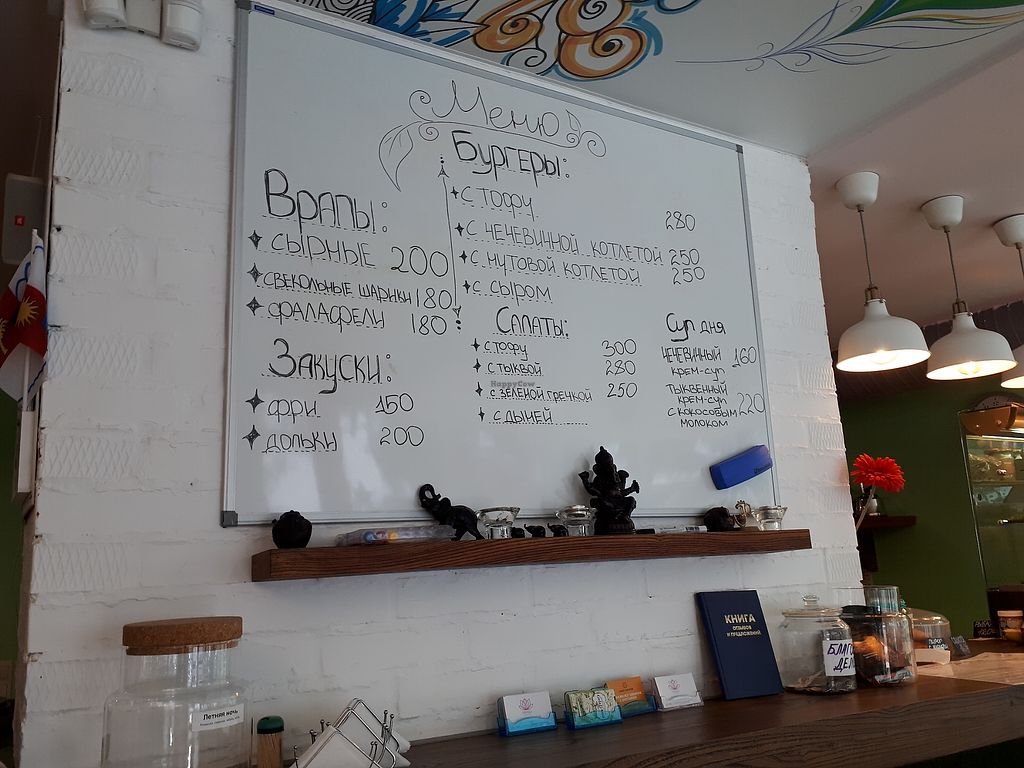 Меню
Врапы:
СЫРНЫЕ 200
СВЕКОЛЬНЫЕ ШАРИКИ 180
ФАЛАФЕЛИ 180
Закуски:
ФРИ 150
ДОЛЬКИ 200
Бургеры:
С ТОФУ 280
С ЧЕЧЕВИЧНОЙ КОТЛЕТОЙ 250
С НУТОВОЙ КОТЛЕТОЙ 250
С СЫРОМ
Салаты:
С ТОФУ 300
С ТЫКВОЙ 280
С ЗЕЛЁНОЙ ГРЕЧКОЙ 250
С ДЫНЕЙ
Суп дня
ЧЕЧЕВИЧНЫЙ 160
КРЕМ-СУП
ТЫКВЕННЫЙ
КРЕМ-СУП
С КОКОСОВЫМ 220
МОЛОКОМ
HappyCow
КНИГА
ОТЗЫВОВ
И ПРЕДЛОЖЕНИЙ
Летняя ночь